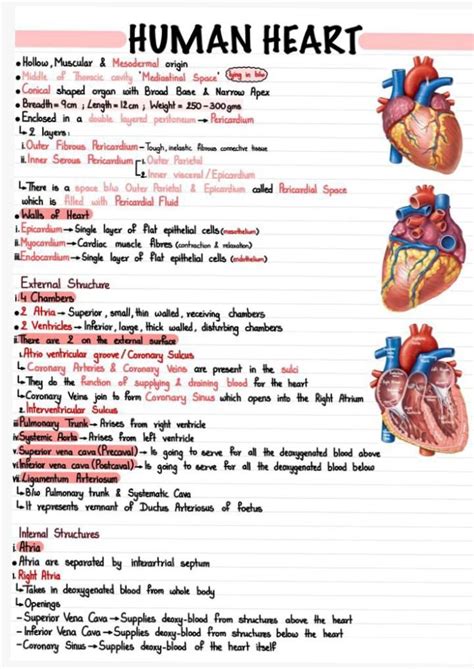 HUMAN HEART
• Hollow, Muscular & Mesodermal origin
• Middle of Thoracic cavity 'Mediastinal Space' (lying in b/w)
• Conical shaped organ with Broad Base & Narrow Apex
• Breadth = 9cm ; Length = 12cm ; Weight = 250-300gms
• Enclosed in a double layered peritoneum → Pericardium
↳ 2 layers:
i. Outer Fibrous Pericardium - Tough, inelastic fibrous connective tissue
ii. Inner Serous Pericardium i. Outer Parietal
ii. Inner visceral / Epicardium
↳ There is a space b/w Outer Parietal & Epicardium called Pericardial Space
which is filled with Pericardial Fluid
• Walls of Heart
i. Epicardium → Single layer of flat epithelial cells (mesothelium)
ii. Myocardium → Cardiac muscle fibres (contraction & relaxation)
iii. Endocardium → Single layer of flat epithelial cells (endothelium)
External Structure
i. 4 Chambers
• 2 Atria → Superior, small, thin walled, receiving chambers
• 2 Ventricles → Inferior, large, thick walled, disturbing chambers
ii. There are 2 on the external surface
1. Atrio ventricular groove / Coronary Sulcus
↳ Coronary Arteries & Coronary Veins are present in the sulci
↳ They do the function of supplying & draining blood for the heart
↳ Coronary Veins join to form Coronary Sinus which opens into the Right Atrium
2. Interventricular Sulcus
iii. Pulmonary Trunk → Arises from right ventricle
iv. Systemic Aorta → Arises from left ventricle
v. Superior vena cava (Precaval) → Is going to serve for all the deoxygenated blood above
vi. Inferior vena cava (Postcaval) → Is going to serve for all the deoxygenated blood below
vii. Ligamentum Arteriosum
↳ B/w Pulmonary trunk & Systematic Cava
↳ It represents remnant of Ductus Arteriosus of foetus
Internal Structures
i. Atria
• Atria are separated by interartrial septum
1. Right Atria
↳ Takes in deoxygenated blood from whole body
↳ Openings
- Superior Vena Cava → Supplies deoxy-blood from structures above the heart
- Inferior Vena Cava → Supplies deoxy-blood from structures below the heart
- Coronary Sinus → Supplies deoxy-blood of the heart itself